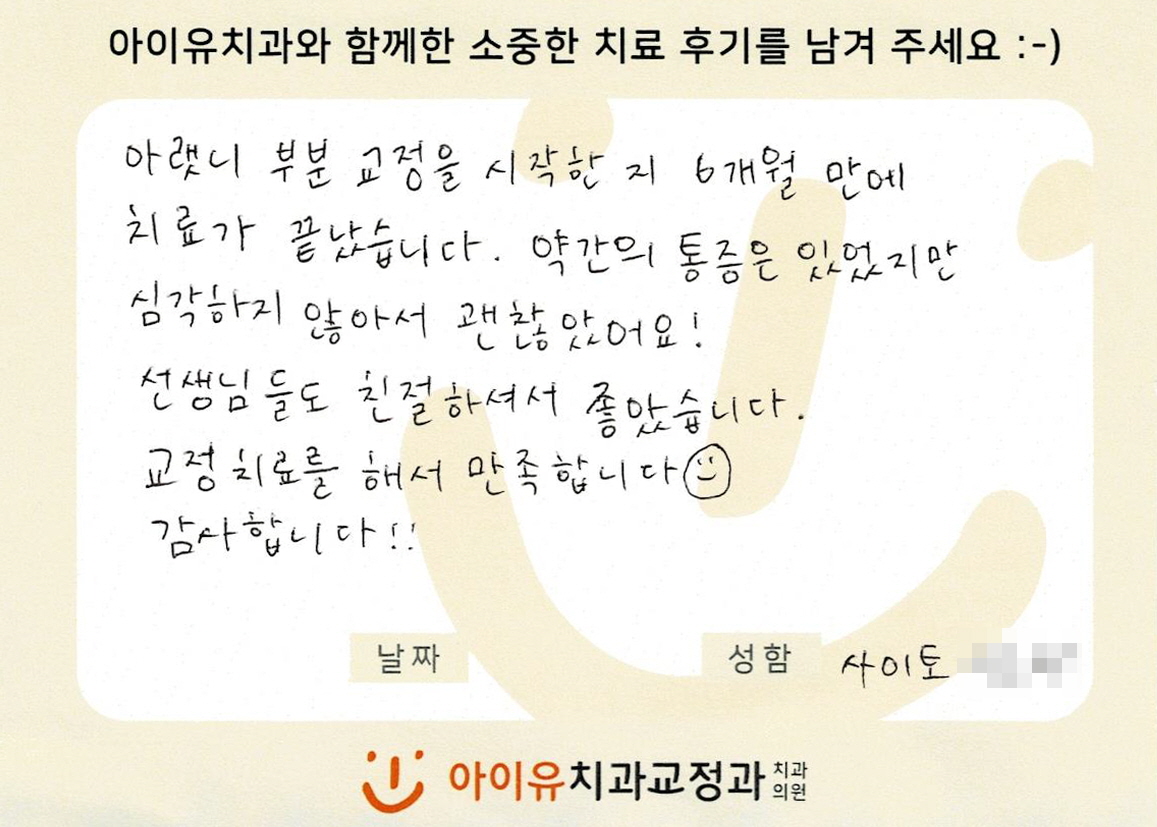 아이유치과와 함께한 소중한 치료 후기를 남겨 주세요 :-)
아랫니 부분 교정을 시작한 지 6개월 만에
치료가 끝났습니다. 약간의 통증은 있었지만
심각하지 않아서 괜찮았어요!
선생님들도 친절하셔서 좋았습니다.
교정 치료를 해서 만족합니다
감사합니다!!
날짜
성함 사이토
아이유치과교정과 치과
의원